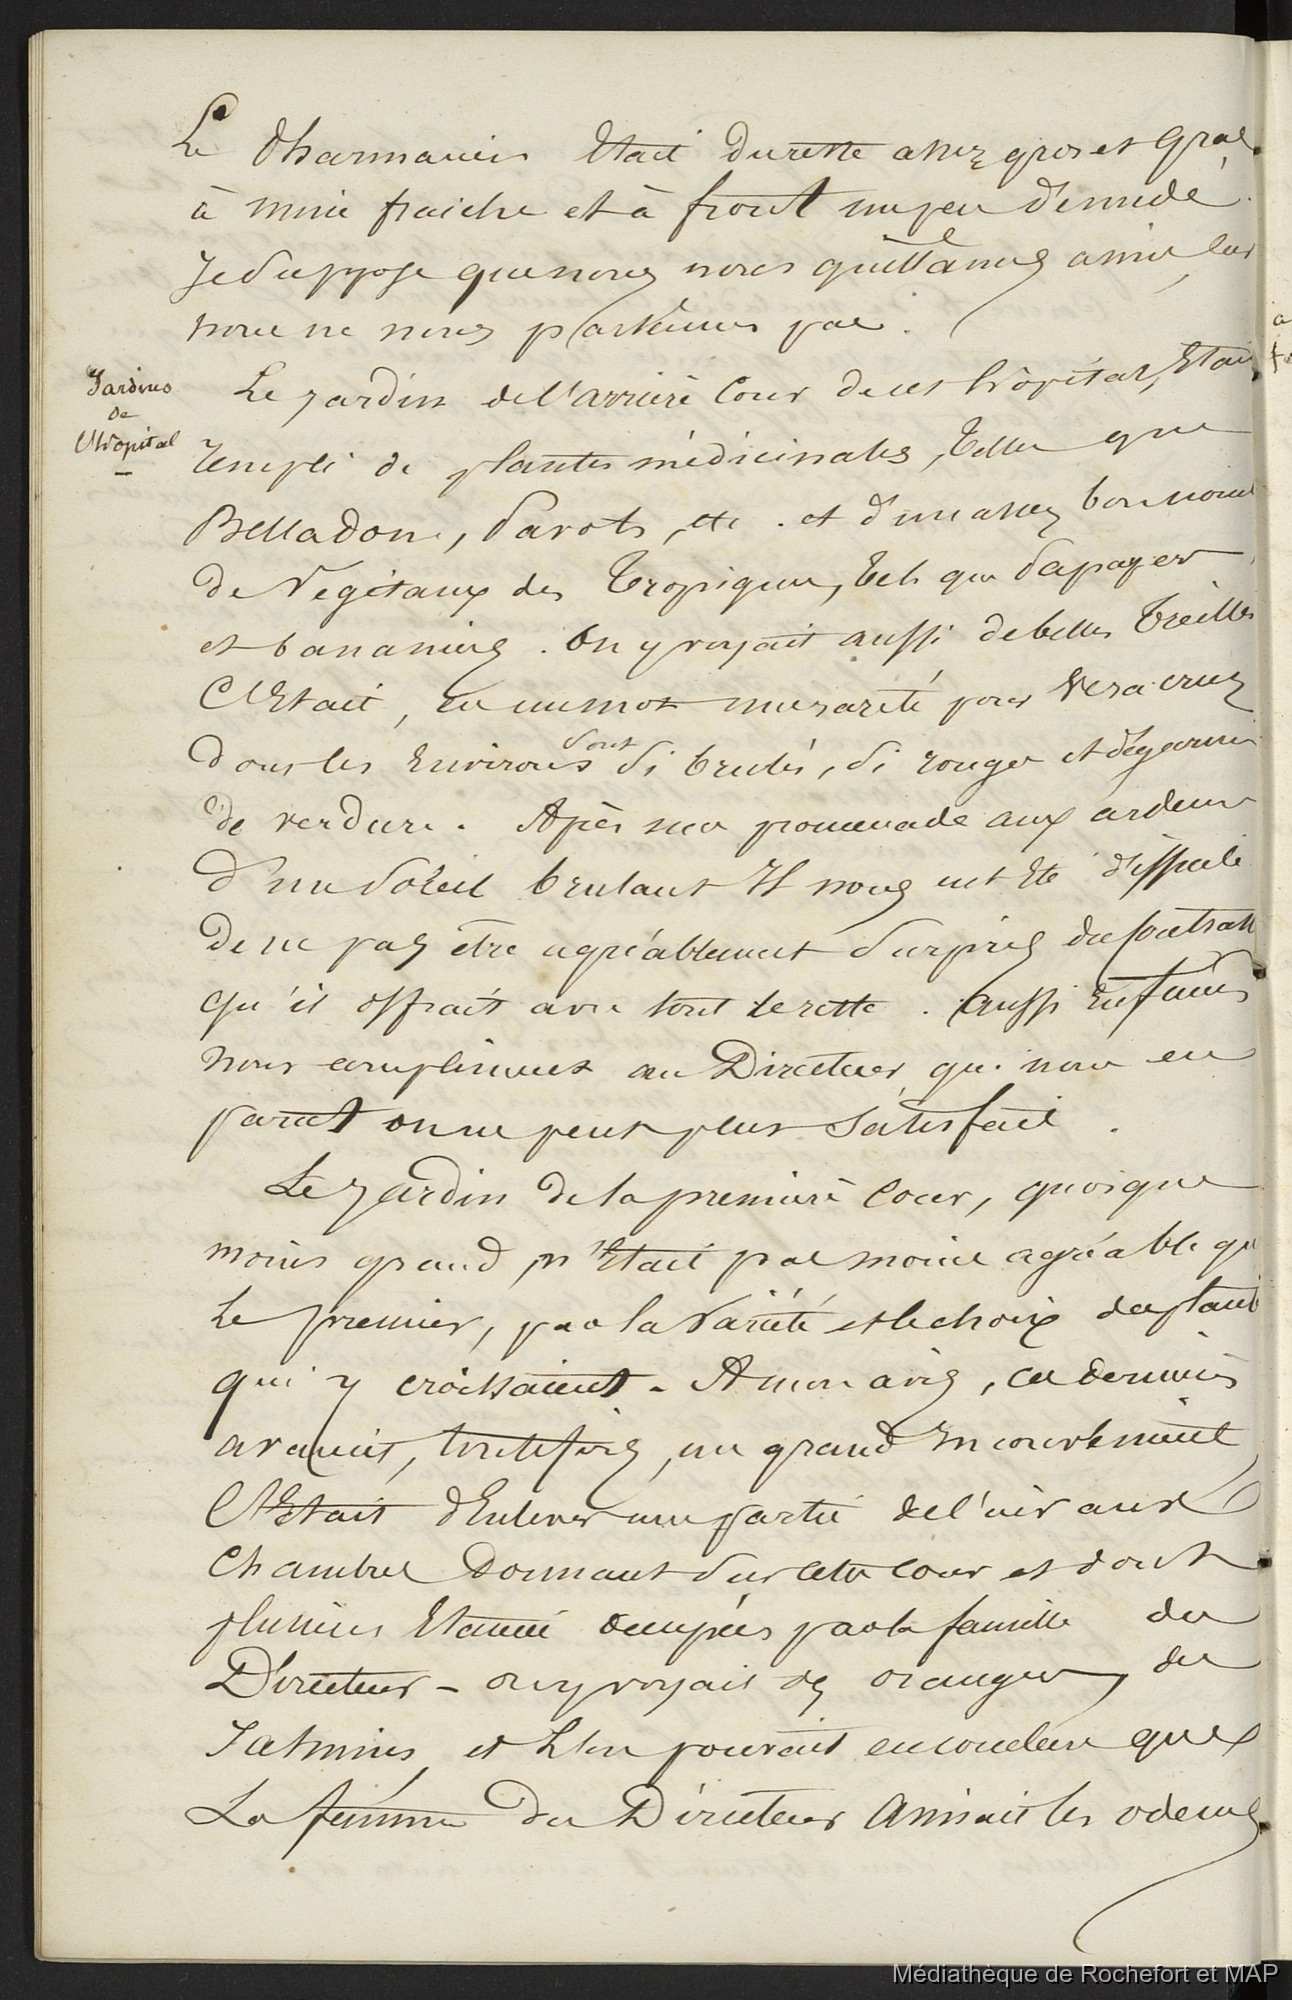 Le Pharmacien Etait dureste assez gros et gras
à mine fraiche et à front un peu dénudé.
Je suppose que nous nous quittames amis, car
nous ne nous parlames pas.
Jardins
de
l'hopital
Le jardin de l'arrière Cour de cet hôpital, Etait
rempli de plantes médicinales, telles que
Belladone, Pavots, etc. et d'un assez bon nomb
de Végétaux des Tropiques, tels que papayer
et bananiers. On y voyait aussi de belles treilles
C'Etait, en un mot une rareté pour Vera cruz
dont les Environs sont si brulés, si rouges et dégarnis
de verdure. Après une promenade aux ardeurs
d'un Soleil brulant Il nous eut été difficile
de ne pas être agréablement surpris du contraste
qu'il offrait avec tout le reste. Aussi En fimes
nous compliment au Directeur qui nous en
parut on ne peut plus Satisfait.
Le jardin de la première Cour, quoique
moins grand, n'Etait pas moins agréable que
le premier, par la Variété et le choix des plantes
qui y croissaient. A mon avis, ce dernier
avait, toutefois, un grand inconvénient
C'Etait d'Enlever une partie de l'air aux
Chambres donnant sur cette cour et dont
plusieurs Etaient occupées par la famille du
Directeur - on y voyait des orangers, des
Jasmins, et l'on pouvait en conclure que
La femme du Directeur aimait les odeurs
Médiathèque de Rochefort et MAP